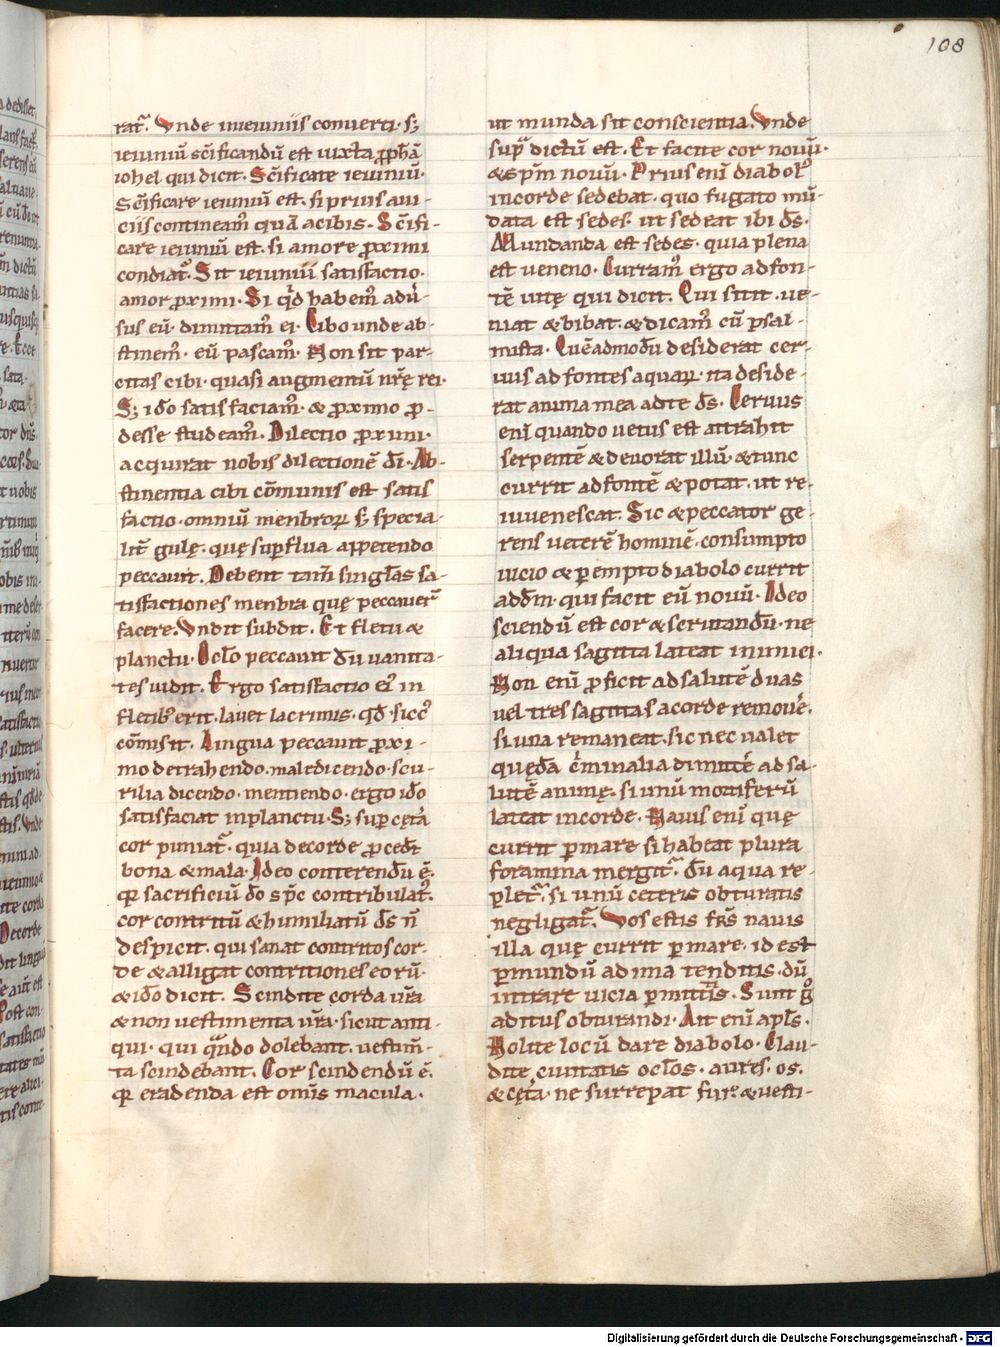 108
rat᷑. Vnde in ieiuniis conuerti. sꝫ
ieiuniū sc̄ificandū est iuxta ꝓph̄ā
iohel qui dicit. Sc̄ificate ieiuniū.
Sc̄ificare ieiuniū est. si prius a ui-
ciis contineam᷒ quā a cibis. Sc̄ifi-
care ieiuniū est. si amore ꝓximi
condiat᷑. Sit ieiuniū satisfactio.
amor ꝓximi. Si qͥd habem᷒ adū-
sus eū. dimittam᷒ ei. Cibo unde ab-
stinem᷒. eū pascam᷒. Non sit par-
citas cibi. quasi augmentū nr̄ę rei.
Sꝫ iđo satisfaciam᷒. & ꝓximo ꝓ-
desse studeam᷒. Dilectio ꝓximi.
acquirat nobis dilectionē dī. Ab-
stinentia cibi cōmunis est satis
factio. omniū menbroꝝ sꝫ specia-
lit̄ gulę. quę suꝑflua appetendo
peccauit. Debent tam̄ singl̄as sa-
tisfactiones menbra quę peccauer̄
facere. Vnd̄ it subdit. Et fletu &
planctu. Ocl̄o peccauit dū uanita-
tes uidit. Ergo satisfactio ei᷒ in
fletib᷒ erit. lauet lacrimis. qđ sicc᷒
cōmisit. Lingua peccauit ꝓxi-
mo detrahendo. maledicendo. scu-
rilia dicendo. mentiendo. ergo iđo
satisfaciat in planctu. Sꝫ suꝑ cęt̄a
cor puniat᷑. quia de corde ꝓced̄t
bona & mala. Ideo conterendū ē.
qꝛ sacrificiū dō sp̄c contribulat᷒.
cor contritū & humiliatū ds̄ n̄
despicit. qui sanat contritos cor-
de & alligat contritiones eorū.
& iđo dicit. Scindite corda ur̄a
& non uestimenta ur̄a. sicut anti-
qui. qui qͣndo dolebant. uestim̄-
ta scindebant. Cor scindendū ē.
qꝛ eradenda est omīs macula.
ut munda sit conscientia. Vnde
supͣ dictū est. Et facite cor nouū.
& sp̄m nouū. Prius enī diabol᷒
in corde sedebat. quo fugato mū-
data est sedes. ut sedeat ibi ds̄.
Mundanda est sedes. quia plena
est ueneno. Curram᷒ ergo ad fon-
tē uitę qui dicit. Qui sitit. ue-
niat & bibat. & dicam᷒ cū psal-
mista. Quēadmodū desiderat cer-
uus ad fontes aquaꝝ. ita deside-
rat anima mea ad te ds̄. Ceruus
enī quando uetus est attrahit
serpentē & deuorat illū. & tunc
currit ad fontē & potat. ut re-
iuuenescat. Sic & peccator ge-
rens ueterē hominē. consumpto
uicio & ꝑempto diabolo currit
ad dm̄. qui facit eū nouū. Ideo
sciendū est cor & scrutandū. ne
aliqua sagitta lateat inimici.
Non enī ꝓficit ad salutē duas
uel tres sagittas a corde remouē.
si una remaneat. sic nec ualet
quędā cͥminalia dimittē ad sa-
lutē animę. si unū mortiferū
lateat in corde. Nauis enī quę
currit ꝑ mare si habeat plura
foramina mergit᷑. dū aqua re-
plet᷑. si unū ceteris obturatis
negligat᷑. Vos estis fr̄s nauis
illa quę currit ꝑ mare. id est
ꝑ mundū ad ima tenditis. dū
intrare uicia ꝑmittitis. Sunt gͦ
aditus obturandi. Ait enī apl̄s.
Nolite locū dare diabolo. Clau-
dite ciuitatis ocl̄os. aures. os.
& cęt̄a. ne surrepat fur. & uesti-
Digitalisierung gefördert durch die Deutsche Forschungsgemeinschaft - DFG